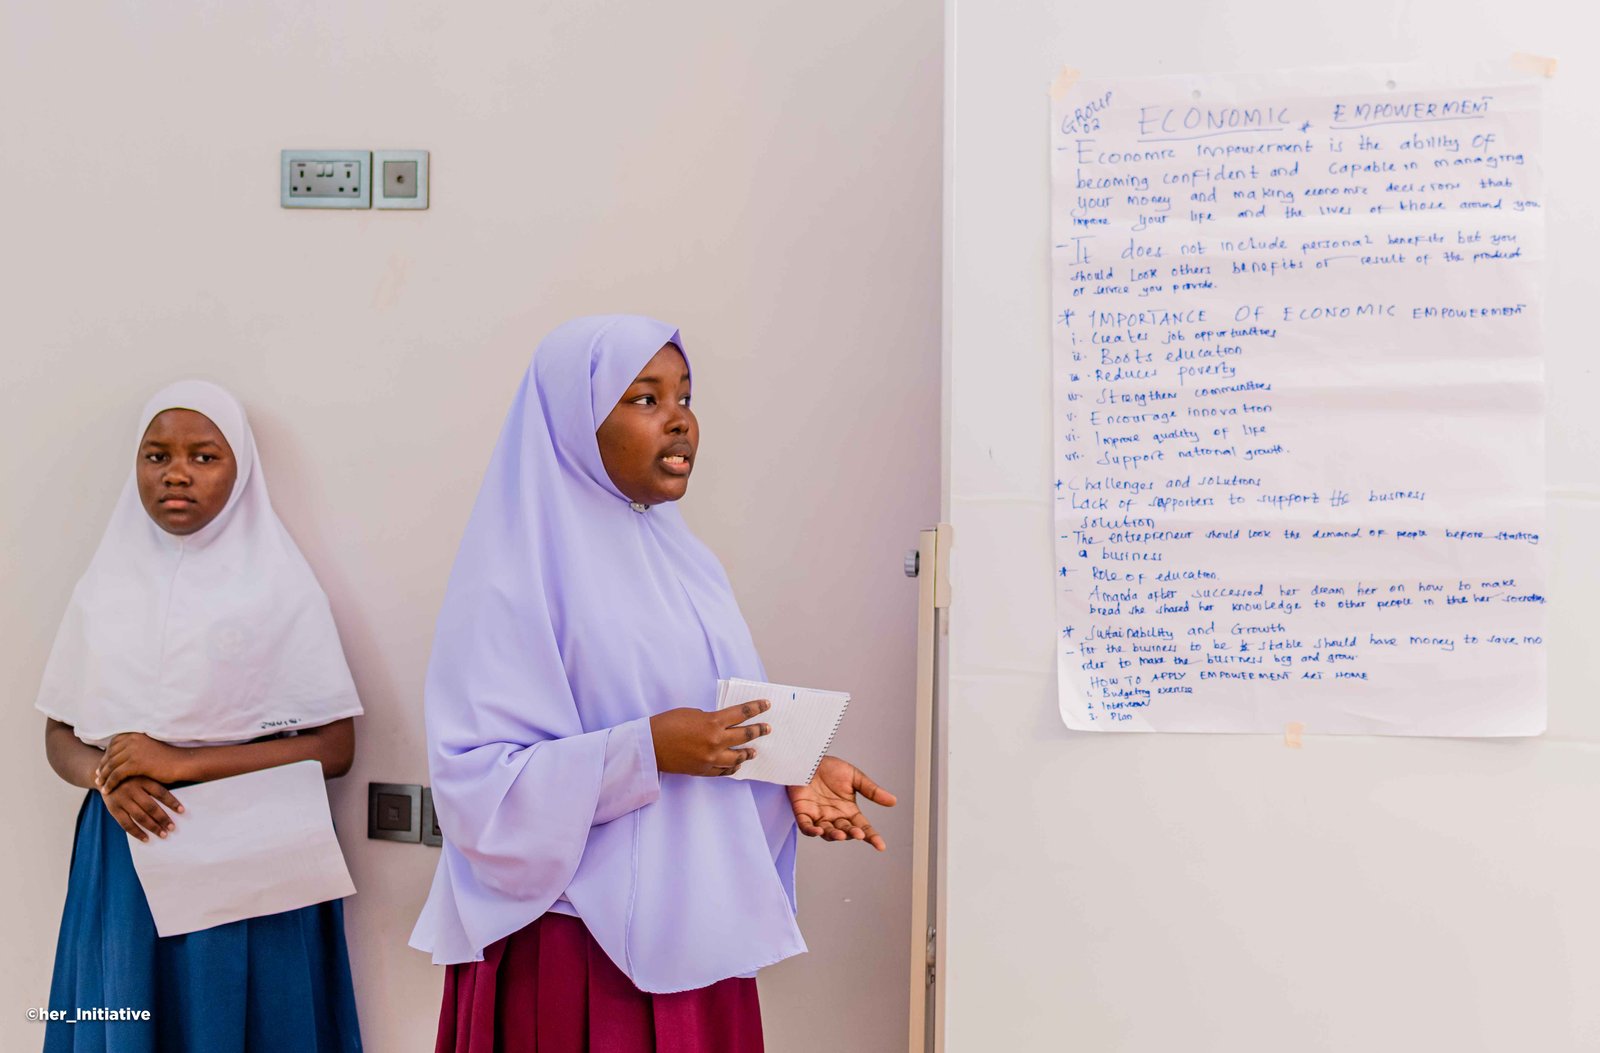 GROUP
02
ECONOMIC EMPOWERMENT
- Economic Impowerment is the ability OF
becoming confident and capable in managing
your money and making economic decisions that
improve your life and the lives of those around you
- It does not include personal benefits but you
should look others benefits or result of the product
or service you provide.
* IMPORTANCE OF ECONOMIC EMPOWERMENT
i. Creates job opportunities
ii. Boots education
iii. Reduces poverty
iv. Strengthen communities
v. Encourage innovation
vi. Improve quality of life
vii. Support national growth.
* Challenges and solutions
- Lack of supporters to support the business
solution
- The entrepreneur should look the demand of people before starting
a business
* Role of education.
- Amanda after successed her dream her on how to make
bread she shared her knowledge to other people in the her society
* Sustainability and Growth
- For the business to be stable should have money to save ino
rder to make the business big and grow.
HOW TO APPLY EMPOWERMENT AT HOME
1. Budgeting exercise
2. Interview
3. Plan
©her_Initiative